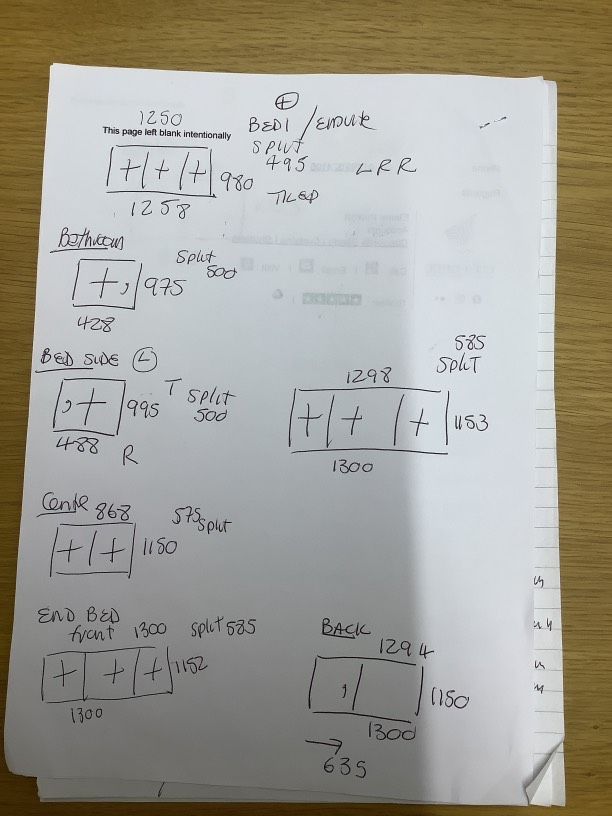 1250
This page left blank intentionally
BED1 / ENSUITE
SPLIT
495
LRR
980
TILED
1258
Bathroom
Split
500
975
428
BED SIDE L
T Split
500
995
488
R
585
SPLIT
1298
1153
1300
Centre 868
575 split
1150
END BED
front 1300 split 585
1152
1300
BACK
1294
1150
1300
→
635